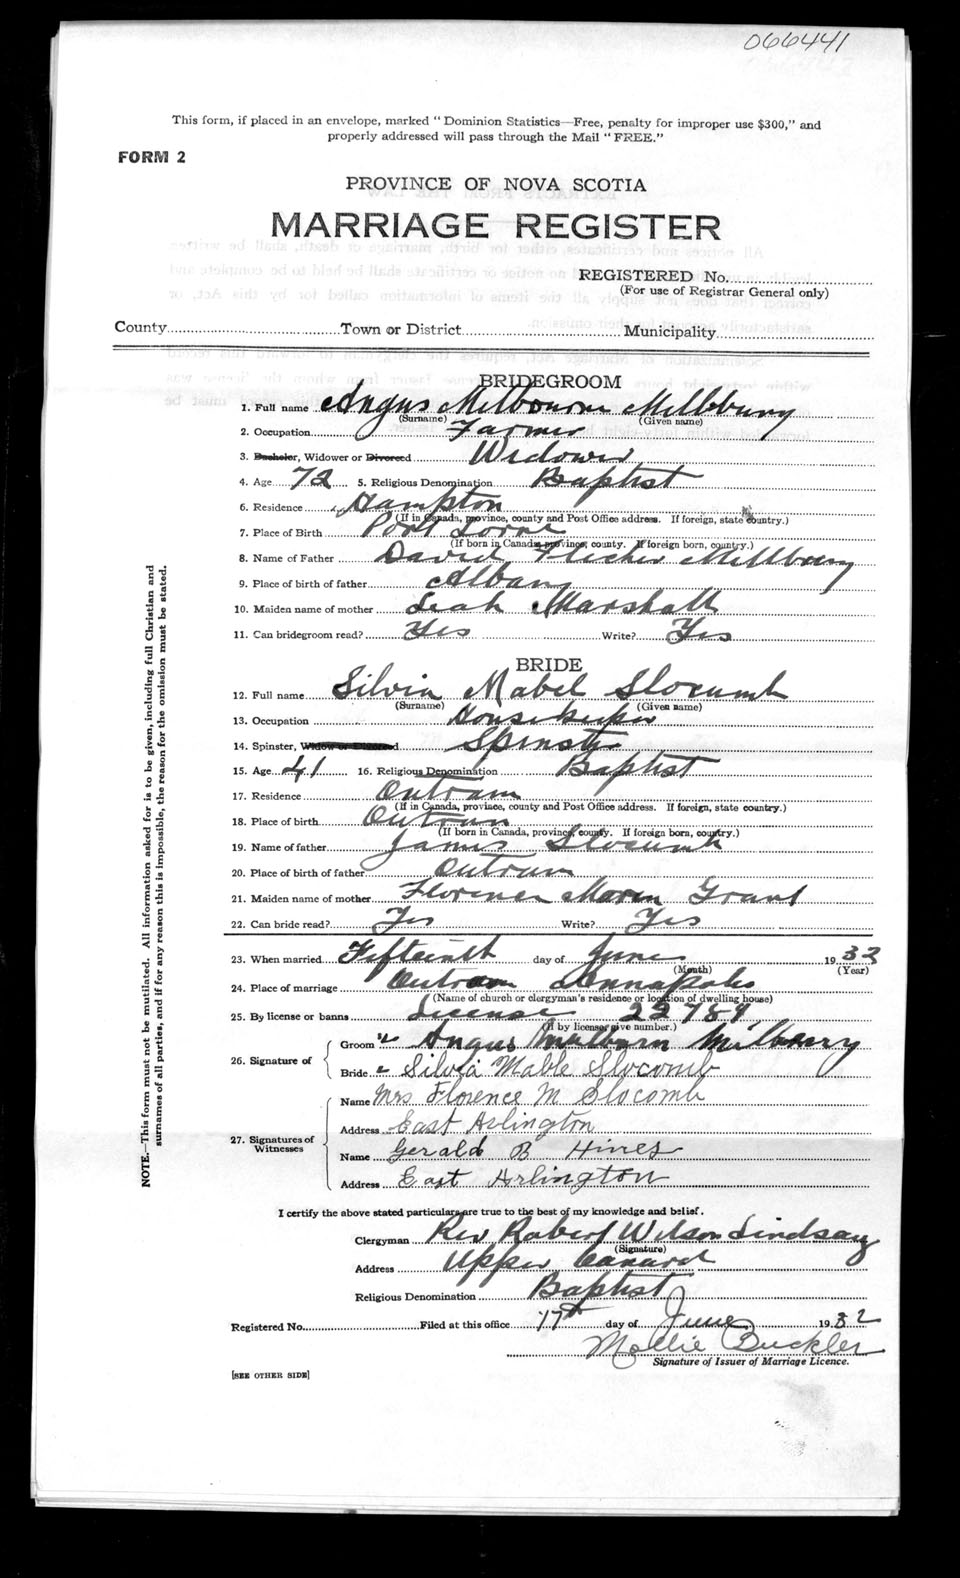 066441
This form, if placed in an envelope, marked "Dominion Statistics—Free, penalty for improper use $300," and
properly addressed will pass through the Mail "FREE."
FORM 2
PROVINCE OF NOVA SCOTIA
MARRIAGE REGISTER
REGISTERED No.
(For use of Registrar General only)
County Town or District Municipality
BRIDEGROOM
1. Full name Angus Melbourn Millbury
(Surname) (Given name)
2. Occupation Farmer
3. Bachelor, Widower or Divorced Widower
4. Age 72 5. Religious Denomination Baptist
6. Residence Hampton
(If in Canada, province, county and Post Office address. If foreign, state country.)
7. Place of Birth Port Lorne
(If born in Canada, province, county. If foreign born, country.)
8. Name of Father David Millbury
9. Place of birth of father Albany
10. Maiden name of mother Leah Marshall
11. Can bridegroom read? Yes Write? Yes
BRIDE
12. Full name Silvia Mabel Slocumb
(Surname) (Given name)
13. Occupation Housekeeper
14. Spinster, Widow or Divorced Spinster
15. Age 41 16. Religious Denomination Baptist
17. Residence Outram
(If in Canada, province, county and Post Office address. If foreign, state country.)
18. Place of birth Outram
(If born in Canada, province, county. If foreign born, country.)
19. Name of father James Slocumb
20. Place of birth of father Outram
21. Maiden name of mother Florence Grant
22. Can bride read? Yes Write? Yes
23. When married Fifteenth day of June 1932
(Month) (Year)
24. Place of marriage Outram Annapolis
(Name of church or clergyman's residence or location of dwelling house)
25. By license or banns License 22784
(If by license, give number.)
26. Signature of
Groom Angus Melburn Milberry
Bride Silvia Mable Slocomb
27. Signatures of Witnesses
Name Mrs Florence M Slocomb
Address East Arlington
Name Gerald B Hines
Address East Arlington
I certify the above stated particulars are true to the best of my knowledge and belief.
Clergyman Rev Robert Wilson Lindsay
(Signature)
Address Upper Canard
Religious Denomination Baptist
Registered No. Filed at this office 17th day of June 1932
Mollie Buckler
Signature of Issuer of Marriage Licence.
[SEE OTHER SIDE]
NOTE.—This form must not be mutilated. All information asked for is to be given, including full Christian and
surnames of all parties, and if for any reason this is impossible, the reason for the omission must be stated.